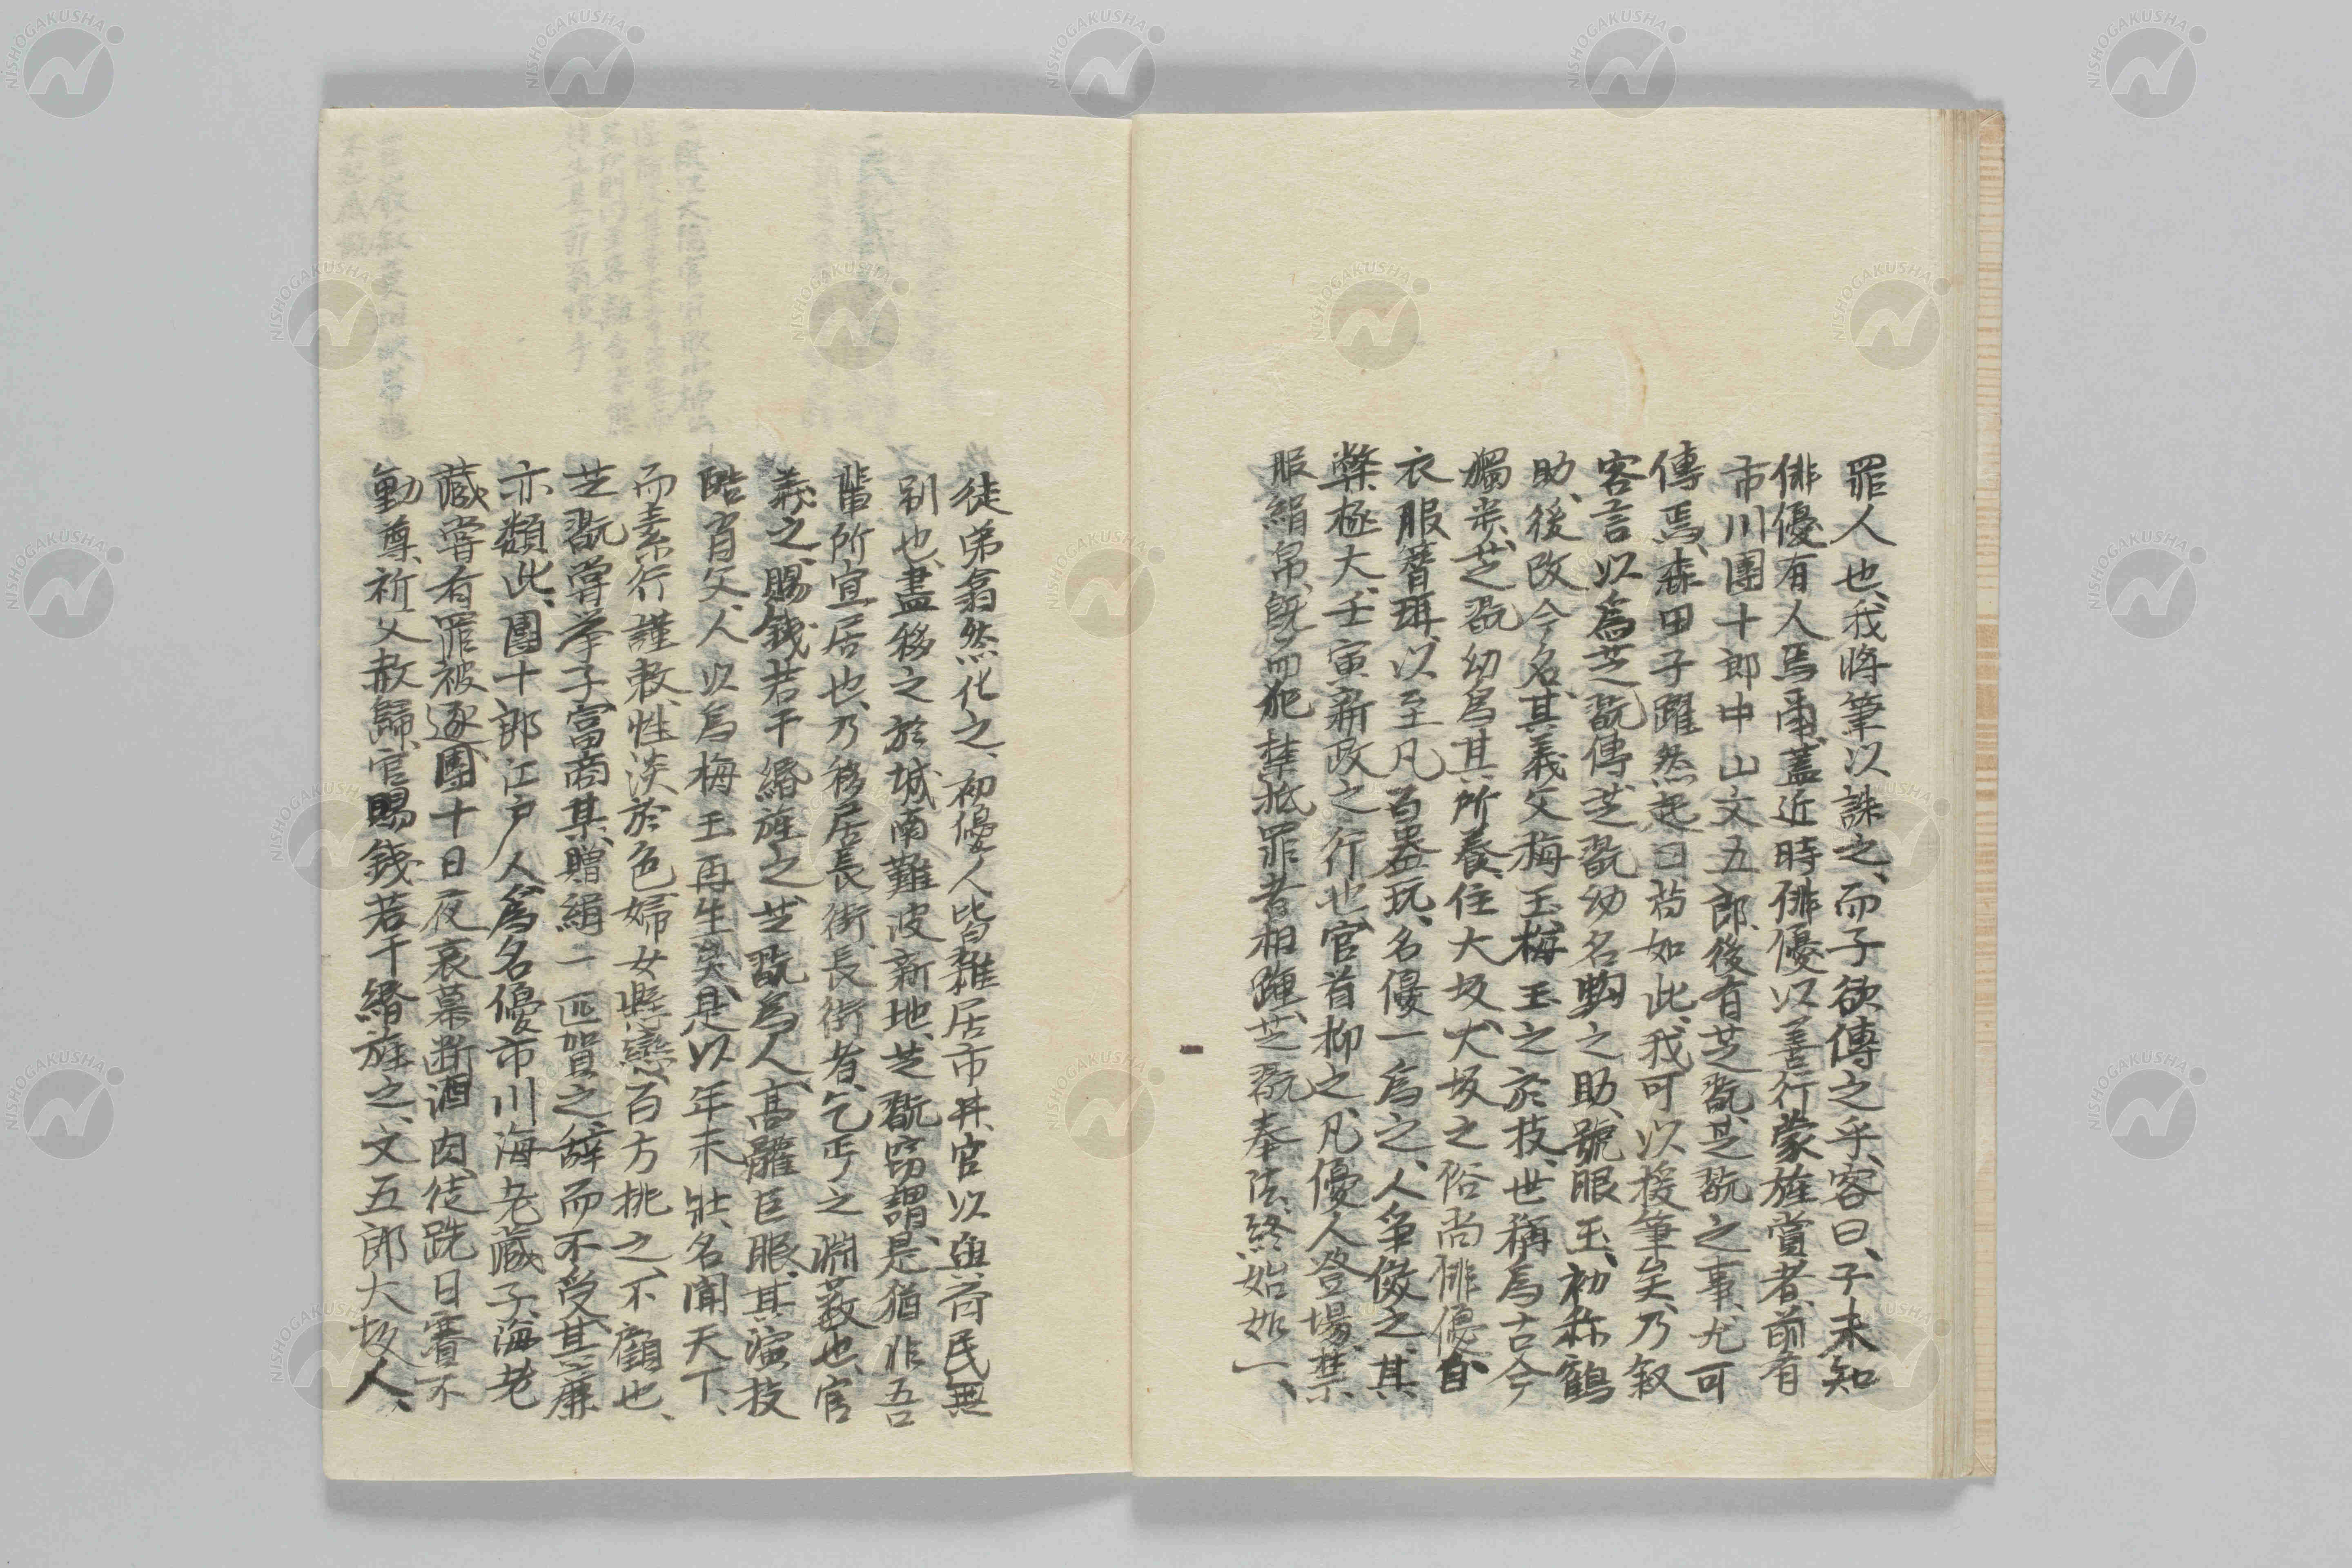 罪人也、我將筆以誅之、而子欲傳之乎、客曰、子未知
俳優有人焉爾、蓋近時俳優以善行蒙旌賞者、前有
市川團十郎中山文五郎、後有芝翫、芝翫之事、尤可
傳焉、森田子躍然起曰、若如此、我可以援筆矣、乃叙
客言以為芝翫傳、芝翫幼名駒之助、號眼玉、初称鶴
助、後改今名、其義父梅玉、梅玉之於技、世稱為古今
獨歩、芝翫幼為其所養、住大坂、大坂之俗尚俳優、自
衣服簪珥、以至凡百器玩、名優一為之、人争傚之、其
弊極大、壬寅新政之行也、官首抑之、凡優人登場、禁
服絹帛、既而犯禁抵罪者相踵、芝翫奉法、終始如一、
徒弟翕然化之、初優人皆雜居市井、官以與齊民無
別也、盡移之於城南難波新地、芝翫窃謂、是猶非吾
輩所宜居也、乃移居長街、長街者、乞丐之淵薮也、官
義之、賜錢若干緡旌之、芝翫為人、高髗巨眼、其演技
酷肖父、人以為梅玉再生矣、是以年未壯、名聞天下、
而素行謹敕、性淡於色、婦女嬖戀、百方挑之、不顧也、
芝翫嘗学子富商某、贈絹一匹賀之、辞而不受、其廉
亦類此、團十郎江戸人、為名優市川海老藏子、海老
藏嘗有罪被逐、團十日夜哀慕、断酒肉、徒跣日賽不
動尊、祈父赦歸、官賜錢若干緡旌之、文五郎大坂人、
NISHOGAKUSHA